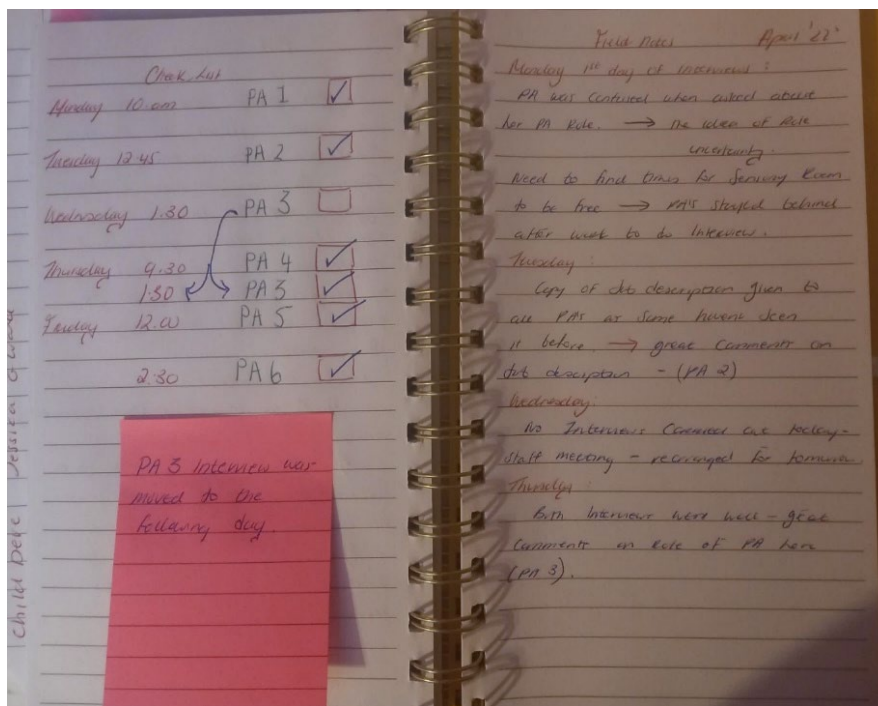 Check List
Monday 10.am PA 1
Tuesday 12.45 PA 2
Wednesday 1.30 PA 3
Thursday 9.30 PA 4
1:30 PA 3
Friday 12.00 PA 5
2:30 PA 6
PA 3 Interview was
moved to the
following day.
Field Notes April '22'
Monday 1st day of Interviews :
PA was confused when asked about
her PA Role. → The idea of Role
uncertainty.
Need to find times for Sensory Room
to be free → PA's stayed behind
after work to do Interview.
Tuesday :
Copy of Job description given to
all PAs as some havent seen
it before. → great comments on
Job description - (PA 2)
Wednesday:
No Interviews Carried out today-
Staff meeting - rearranged for tomorrow
Thursday :
Both Interviews went well - great
Comments on Role of PA here
(PA 3).